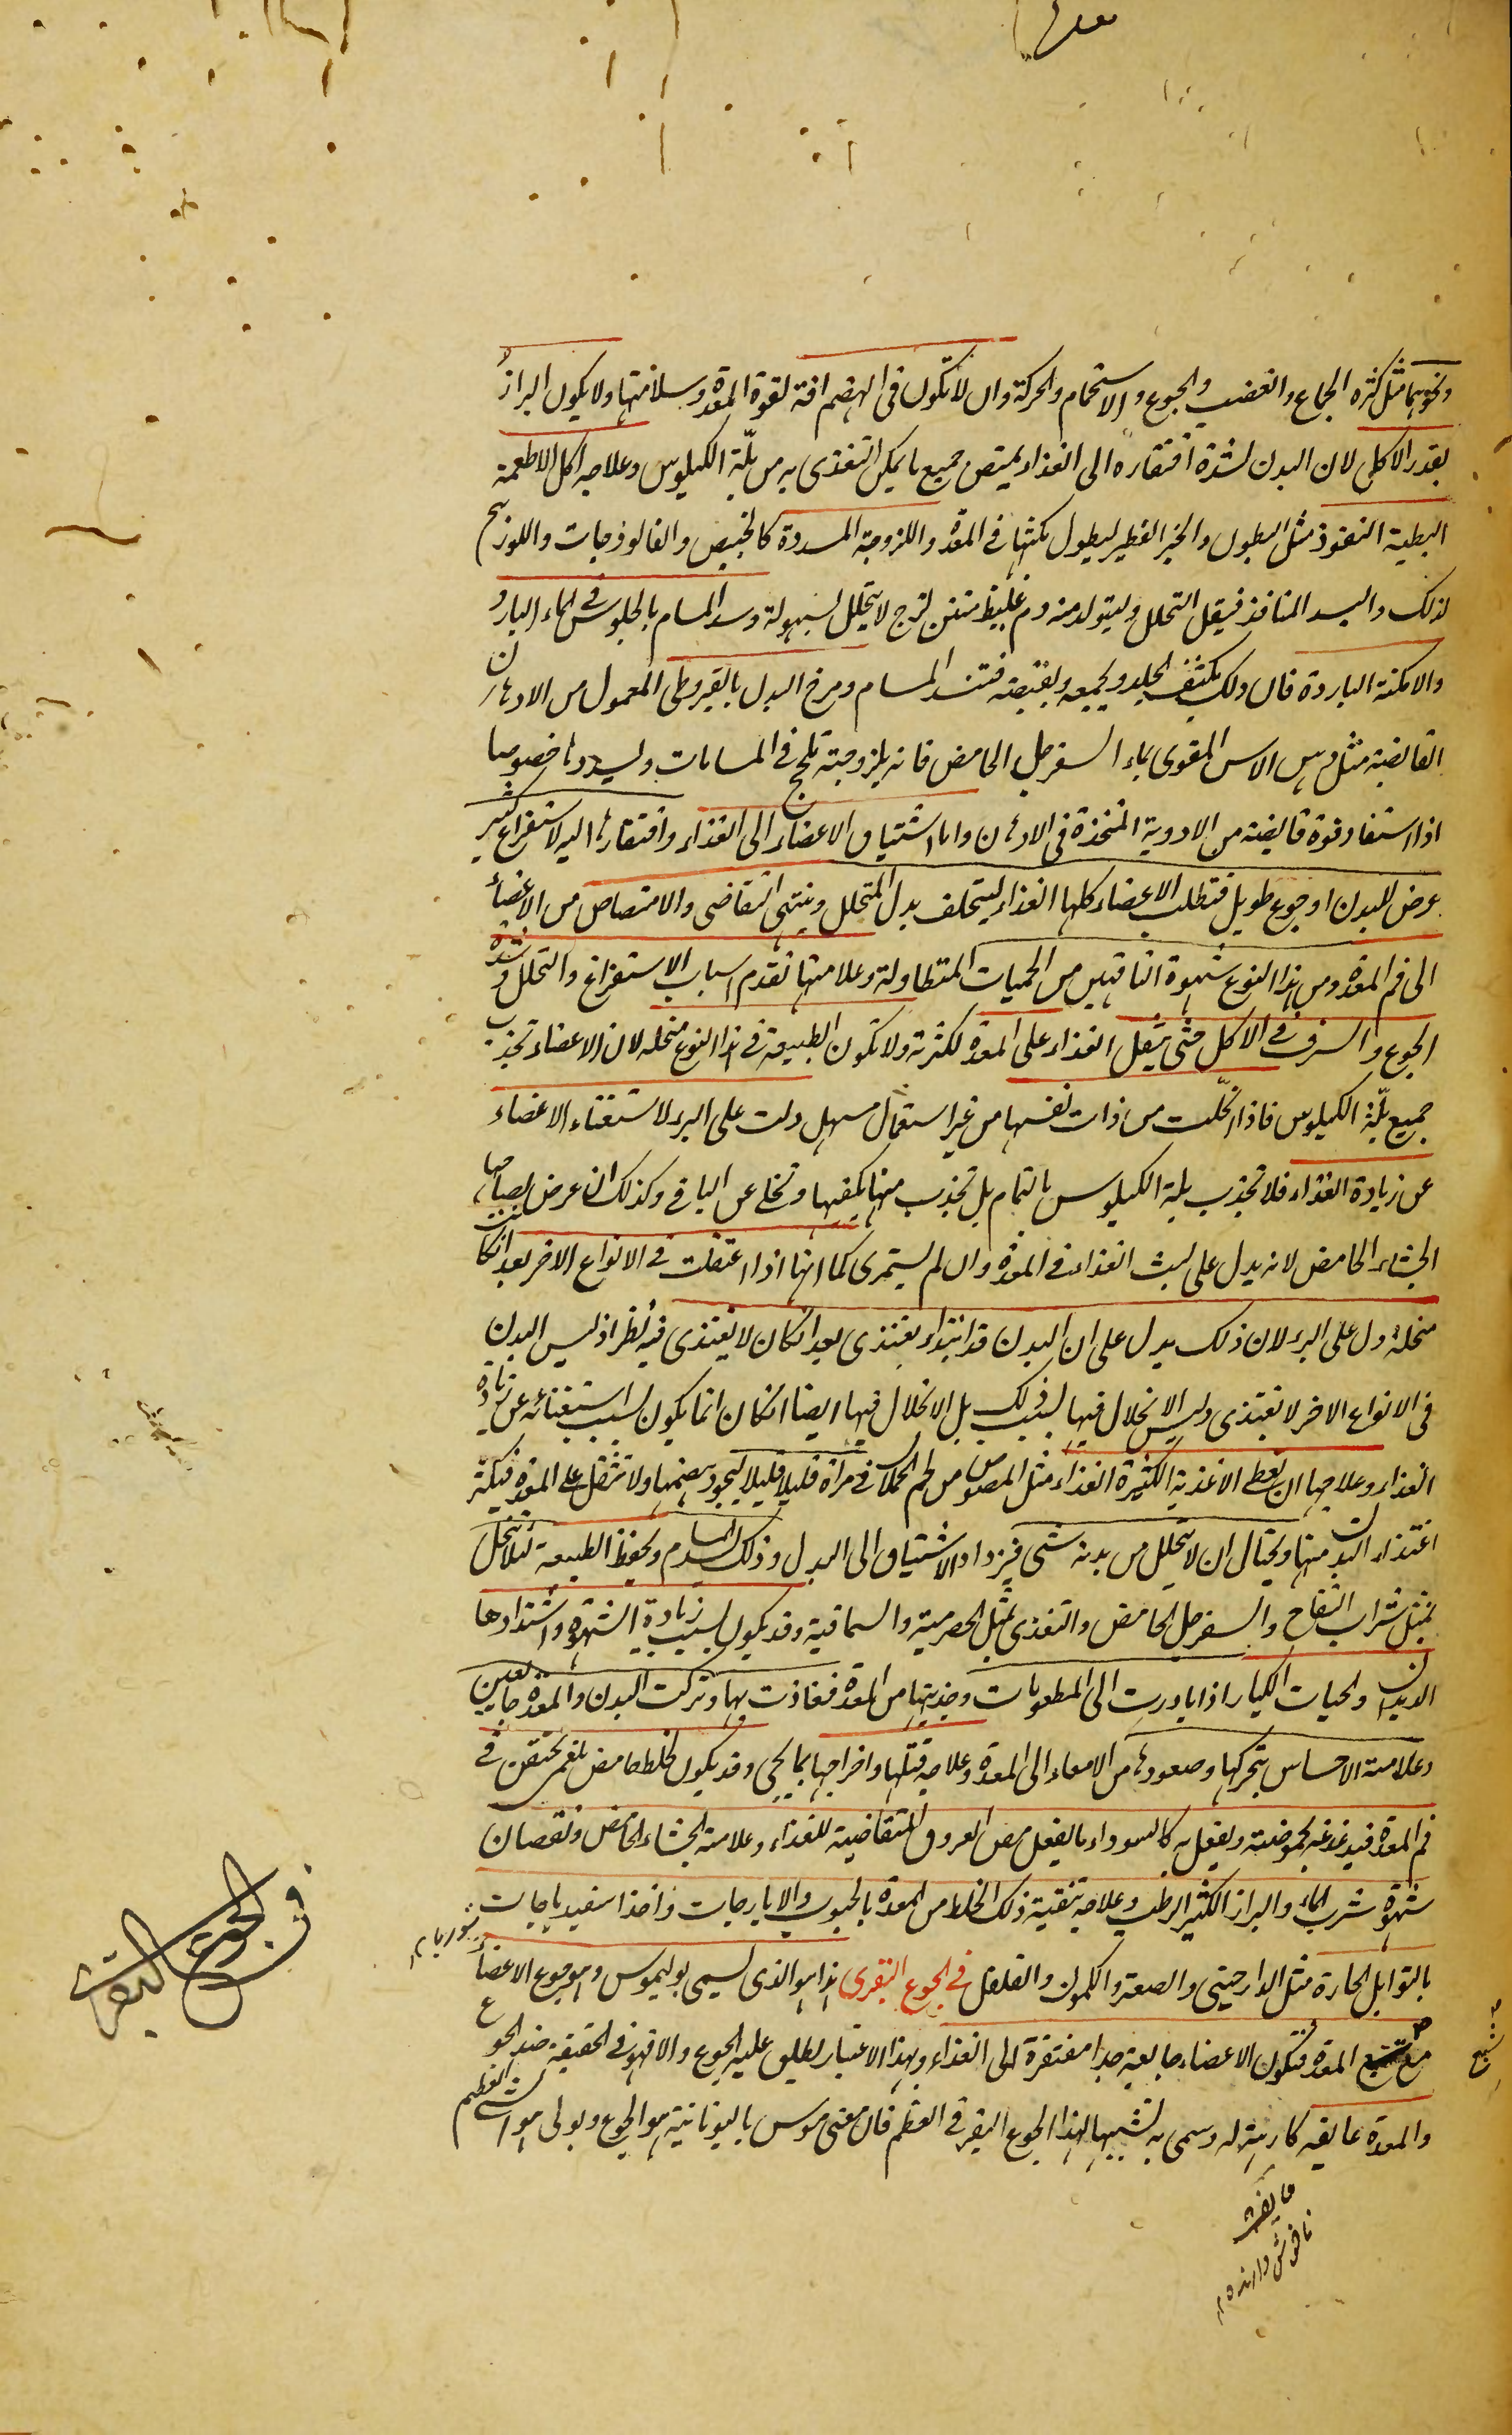 ونحوهما مثل كثرة الجماع والغضب والجوع والاستحمام والحركة وان لا تكون فى الهضم افة لقوة المعدة وسلامتها ولا يكون البراز
بقدر الاكل لان البدن لشدة افتقاره الى الغذاء يمتص جميع ما يمكن التغذى به من بلّة الكيلوس وعلاجه اكل الاطعمة
البطية النفوذ مثل البطون والخبز الفطير ليطول مكثها فى المعدة واللزوجة المسددة كالخبيص والفالوذجات واللوزينج
لذلك واليسد المنافذ فيقل التحلل وليتولد منه دم غليظ متين لزج لا يتحلل بسهولة وسد المسام بالجلوس فى الماء البارد
والامكنة الباردة فان ذلك يكثف الجلد ويجمعه ويقبضه فتنسد المسام ومرخ البدن بالقيروطى المعمول من الادهان
القابضة مثل دهن الاس المقوى بماء السفرجل الحامض فانه بلزوجته تلحج فى المسامات ويسددها خصوصا
اذا استفاد قوة قابضة من الادوية المتخذة فى الادهان واما اشتياق الاعضاء الى الغذاء وافتقارها اليه لاستفراغ كثير
عرض للبدن او جوع طويل فتطلب الاعضاء كلها الغذاء ليتخلف بدل المتحلل وينتهى التقاضى والامتصاص من الاعضاء
الى فم المعدة ومن هذا النوع شهوة الناقهين من الحميات المتطاولة وعلامتها تقدم اسباب الاستفراغ والتحلل وشدة
الجوع والسرف فى الاكل حتى يثقل الغذاء على المعدة لكثرته ولا تكون الطبيعة فى هذا النوع منحلة لان الاعضاء تجذب
جميع بلّة الكيلوس فاذا انحلّت من ذات نفسها من غير استعمال مسهل دلت على البرء لاستغناء الاعضاء
عن زيادة الغذاء فلا تجذب بلة الكيلوس بالتمام بل تجذب منها ما يكفيها وتخلى عن الباقى وكذلك ان عرض لصاحبها
الجشاء الحامض لانه يدل على لبث الغذاء فى المعدة وان لم يستمرى كما انها اذا اعتقلت فى الانواع الاخر بعد ان كانت
منحلة دل على البرء لان ذلك يدل على ان البدن قد ابتداء يغتذى بعد ان كان لا يغتذى فيه نظر اذ ليس البدن
فى الانواع الاخر لا يغتذى وليس الانحلال فيها بسبب ذلك بل الانحلال فيها ايضا ان كان انما يكون بسبب استغنائه عن زيادة
الغذاء وعلاجها ان يعطى الاغذية الكثيرة الغذاء مثل المصوص من لحم الحملان فى مراة قليلا قليلا ليجود هضمها ولا تثقل على المعدة فيكثر
اغتذاء البدن منها ويحتال ان لا يتحلل من بدنه شى فيزداد الاشتياق الى البدل وذلك بسد المسام ويحفظ الطبيعة لئلا تنحل
بمثل شراب التفاح والسفرجل الحامض والتغذى بمثل الحصرمية والسماقية وقد يكون بسبب زيادة الشهوة واشتدادها
الديدان والحيات الكبار اذا بادرت الى المطعومات وجذبتها من المعدة ففاذت بها وتركت البدن والمعدة جايعين
وعلامته الاحساس بتحركها وصعودها من الامعاء الى المعدة وعلاجه قتلها واخراجها بما يجى وقد يكون لخلط حامض بلغمى يحتقن فى
فم المعدة فيدغدغه بحموضته ويفعل به كالسوداء ما يفعل مص العروق المتقاضية للغذاء وعلامته الجشاء الحامض ونقصان
شهوة شرب الماء والبراز الكثير الرطب وعلاجه تنقية ذلك الخلط من المعدة بالحبوب والايارجات واخذ اسفيدباجات
شوربا
بالتوابل الحارة مثل الدارصينى والصعتر والكمون والفلفل فى الجوع البقرى هذا هو الذى يسمى بوليموس وهو جوع الاعضاء
مع شبع المعدة فتكون الاعضاء جايعة جدا مفتقرة الى الغذاء وبهذا الاعتبار يطلق عليه الجوع والا فهو فى الحقيقة ضد الجوع
والمعدة عايفة كارهة له وسمى به تشبيها لهذا الجوع البقر فى العظم فان معنى موس باليونانية هو الجوع وبولى هو الشى العظيم
فى الجوع البقرى
شبع
عايفة
ناخوش دارنده